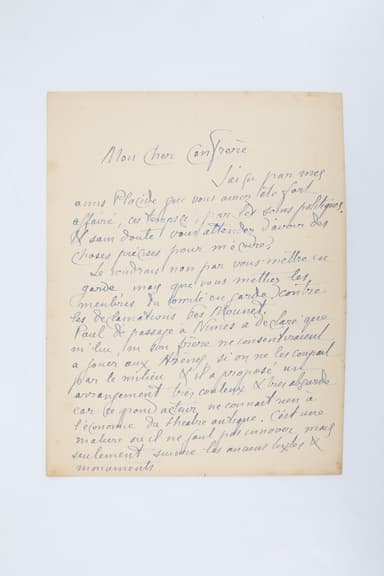 Mon cher Confrère
J'ai su par mes
amis Placide que vous aviez été fort
affairé, ces temps ci, par les soins politiques,
& sans doute vous attendez d'avoir des
choses précises pour m'écrire?
Je voudrais non pas vous mettre en
garde mais que vous mettiez les
membres du comité en garde contre
les déclamations des Mounet.
Paul de passage à Nimes a déclaré que
ni lui, ni son frère ne consentiraient
à jouer aux Arènes, si on ne les coupait
par le milieu & il a proposé un
arrangement très couteux & très absurde
car ce grand acteur ne connait rien à
l'économie du théâtre antique. C'est une
matière où il ne faut pas innover mais
seulement suivre les anciens textes &
monuments